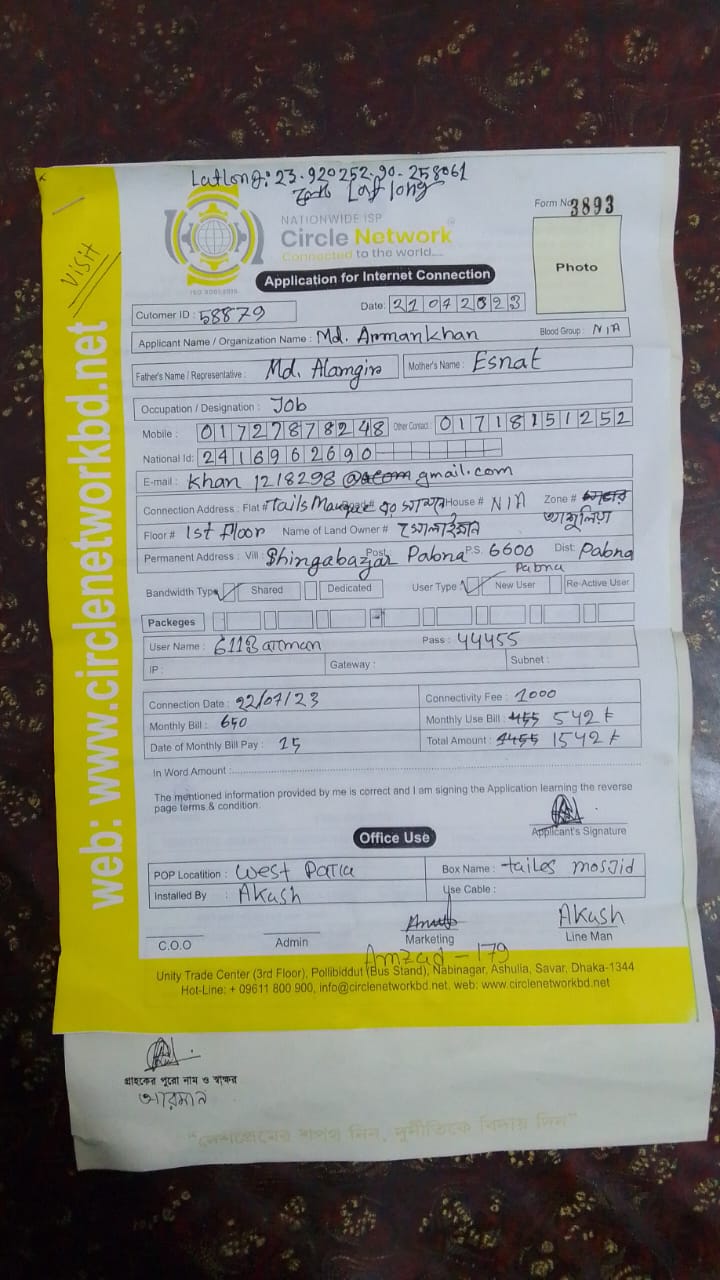 Latlong: 23.920252.90-258061
Lat long
Form No 3893
NATIONWIDE ISP
Circle Network
Connected to the world....
ISO 9001:2015
Photo
Application for Internet Connection
VISIT
web: www.circlenetworkbd.net
Cutomer ID : 58879
Date: 21072023
Applicant Name / Organization Name : Md. Arman khan
Blood Group : N/A
Father's Name / Representative : Md. Alamgir
Mother's Name : Esnat
Occupation / Designation : Job
Mobile : 01727878248
Other Contact : 01718151252
National Id: 2416962690
E-mail : khan 1218298 @ gmail.com
Connection Address : Flat # Tails House # N/A Zone #
আশুলিয়া
Floor # 1st floor Name of Land Owner #
Permanent Address : Vill : Shingabazar Post: Pabna P.S. 6600 Dist: Pabna
Pabna
Bandwidth Type Shared Dedicated User Type : New User Re-Active User
Packeges
User Name : 6113arman Pass : 44455
IP : Gateway : Subnet :
Connection Date : 22/07/23 Connectivity Fee : 1000
Monthly Bill : 650 Monthly Use Bill : 455 542 t
Date of Monthly Bill Pay : 25 Total Amount : 1455 1542 t
In Word Amount :
The mentioned information provided by me is correct and I am signing the Application learning the reverse
page terms & condition.
Applicant's Signature
Office Use
POP Locatition : West Box Name : tailes mosjid
Installed By : Akash Use Cable :
C.O.O
Admin
Marketing
Akash
Line Man
Amzad - 179
Unity Trade Center (3rd Floor), Pollibiddut (Bus Stand), Nabinagar, Ashulia, Savar, Dhaka-1344
Hot-Line: + 09611 800 900, info@circlenetworkbd.net, web: www.circlenetworkbd.net
গ্রাহকের পুরো নাম ও স্বাক্ষর
আরমান
"দেশপ্রেমের শপথ নিন, দুর্নীতিকে বিদায় দিন"